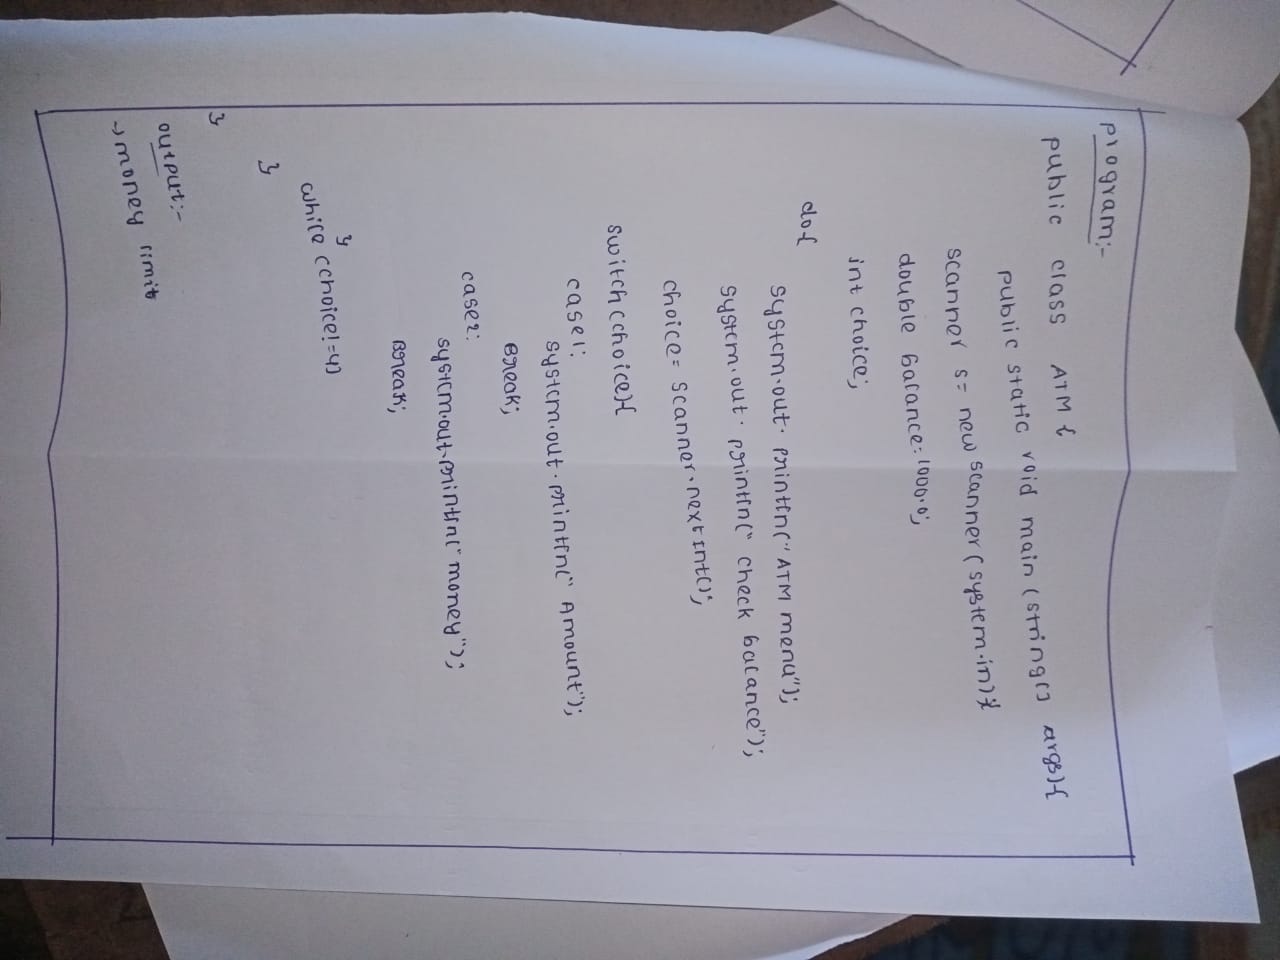 program:-
public class ATM {
public static void main (string[] args){
scanner s= new scanner(system.in);
double balance=1000.0;
int choice;
do{
system.out.println("ATM menu");
system.out.println("check balance");
choice= scanner.nextInt();
switch(choice){
case1:
system.out.println("Amount");
Break;
case2:
system.out.println("money");
Break;
}
while (choice!=4)
}
}
output:-
→ money limit